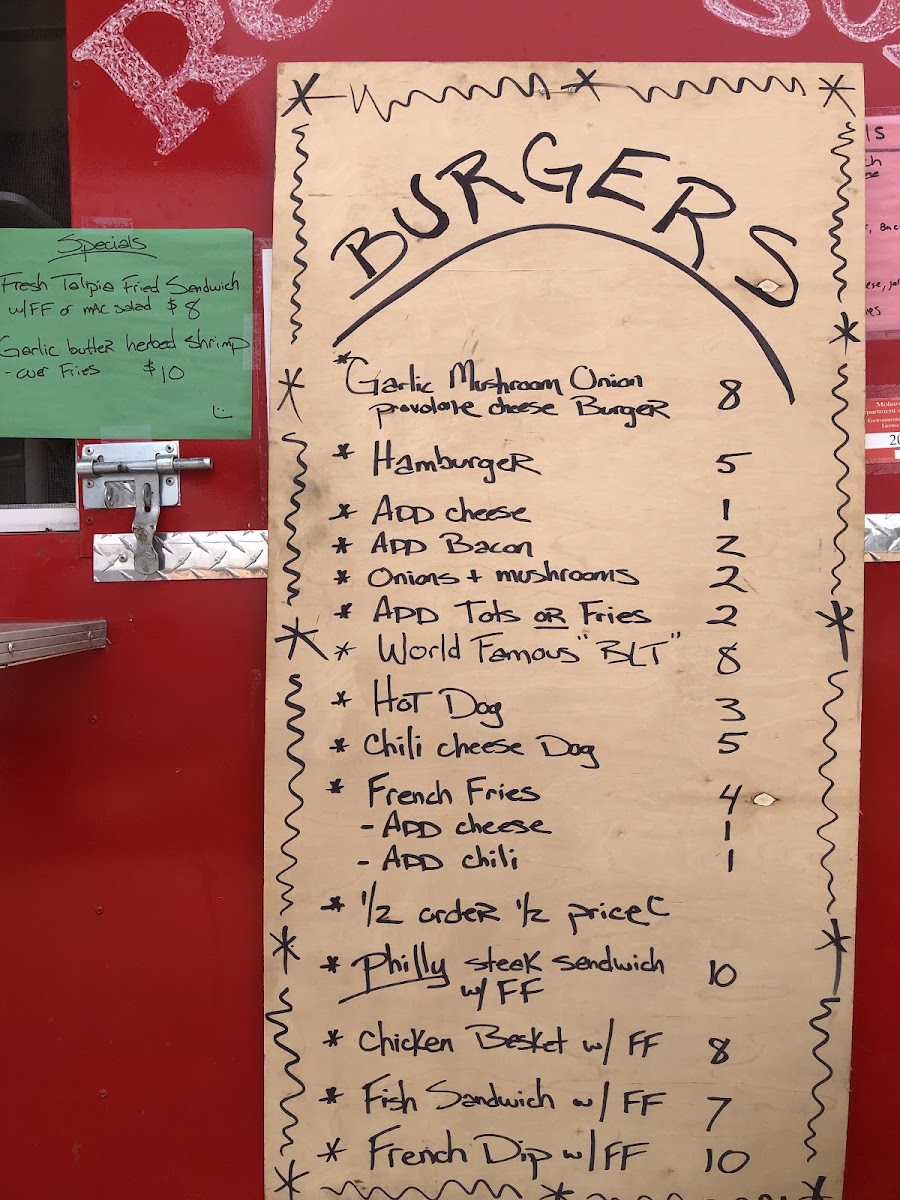 Specials
Fresh Talpia Fried Sandwich
w/FF or mac salad $8
Garlic butter herbed shrimp
- over Fries $10
BURGERS
* Garlic Mushroom Onion
provolone cheese Burger 8
* Hamburger 5
* ADD cheese 1
* ADD Bacon 2
* Onions + mushrooms 2
* ADD Tots OR Fries 2
* World Famous "BLT" 8
* Hot Dog 3
* Chili cheese Dog 5
* French Fries 4
- ADD cheese 1
- ADD chili 1
* 1/2 order 1/2 price
* Philly steak sandwich 10
w/ FF
* Chicken Basket w/ FF 8
* Fish Sandwich w/ FF 7
* French Dip w/FF 10